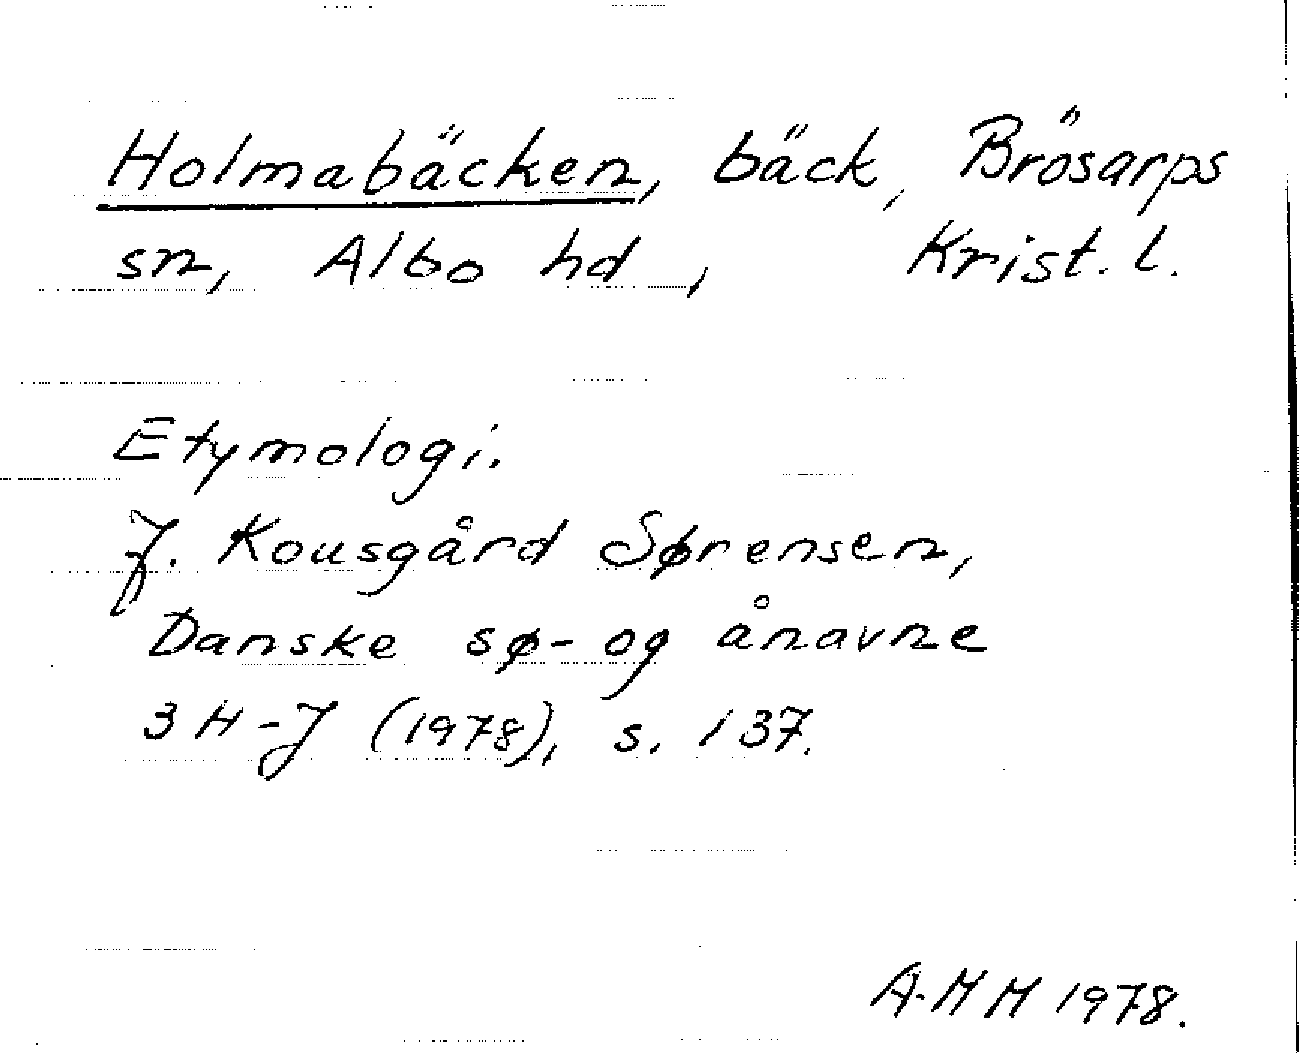 Holmabäcken, bäck, Brösarps
sn, Albo hd, Krist. l.
Etymologi.
J. Kousgård Sørensen,
Danske sø- og ånavne
3 H-J (1978), s. 137.
A-MM 1978.